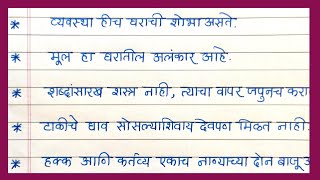 * व्यवस्था हीच घराची शोभा असते.
* मूल हा घरातील अलंकार आहे.
* शब्दांसारख शस्त्र नाही, त्याचा वापर जपुनच करा
* टाकीचे घाव सोसल्याशिवाय देवपण मिळत नाही.
* हक्क आणि कर्तव्य एकाच नाण्याच्या दोन बाजू